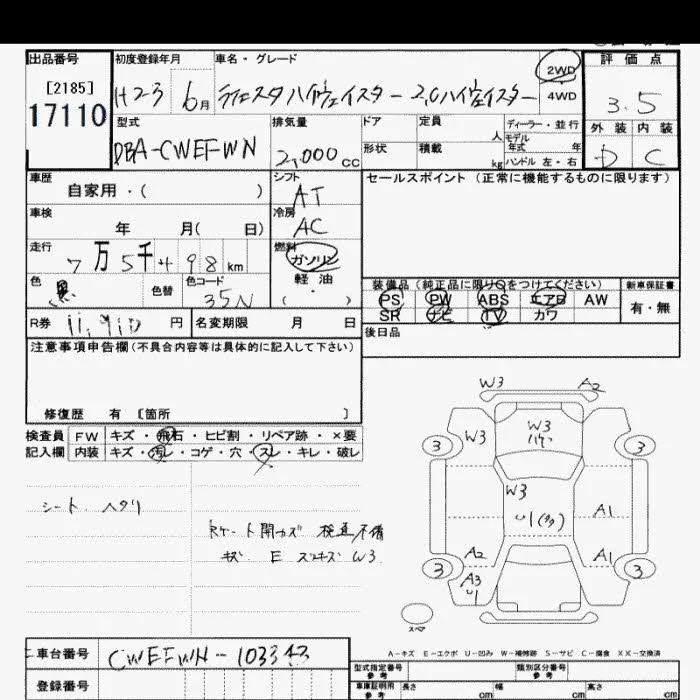 出品番号 初度登録年月 車名・グレード 評価点
[2185]
17110
H23 6月 ラフェスタハイウェイスター 2.0ハイウェイスター 2WD 4WD
3.5
型式 排気量 ドア 定員 人 ディーラー・並行 外装 内装
モデル年式 年
DBA-CWEFWN 2,000cc 形状 積載 kg ハンドル 左・右 D C
車歴 シフト セールスポイント (正常に機能するものに限ります)
自家用・( ) AT
車検 冷房
年 月( 日) AC
走行 燃料
7万5千498km ガソリン
色 色替 色コード 軽油
黒 35N ( ・ )
装備品(純正品に限り○をつけてください) 新車保証書
PS PW ABS エアB AW 有・無
SR ナビ TV カワ
R券 11,910円 名変期限 月 日 後日品
注意事項申告欄(不具合内容等は具体的に記入して下さい)
修復歴 有 [箇所 ]
検査員 FW キズ・飛石・ヒビ割・リペア跡・×要
記入欄 内装 キズ・汚レ・コゲ・穴・スレ・キレ・破レ
シート ヘタリ
キズ E スリキズ W3
W3 A2
W3 W3
3 3
W3
U1(多) A1
A2 A1
3 3
A3
U1
スペア
A-キズ E-エクボ U-凹み W-補修跡 S-サビ C-腐食 XX-交換済
車台番号 CWEFWN-103343
登録番号
型式指定番号 参考 類別区分番号 参考
車庫証明用 参考 長さ cm 幅 cm 高さ cm